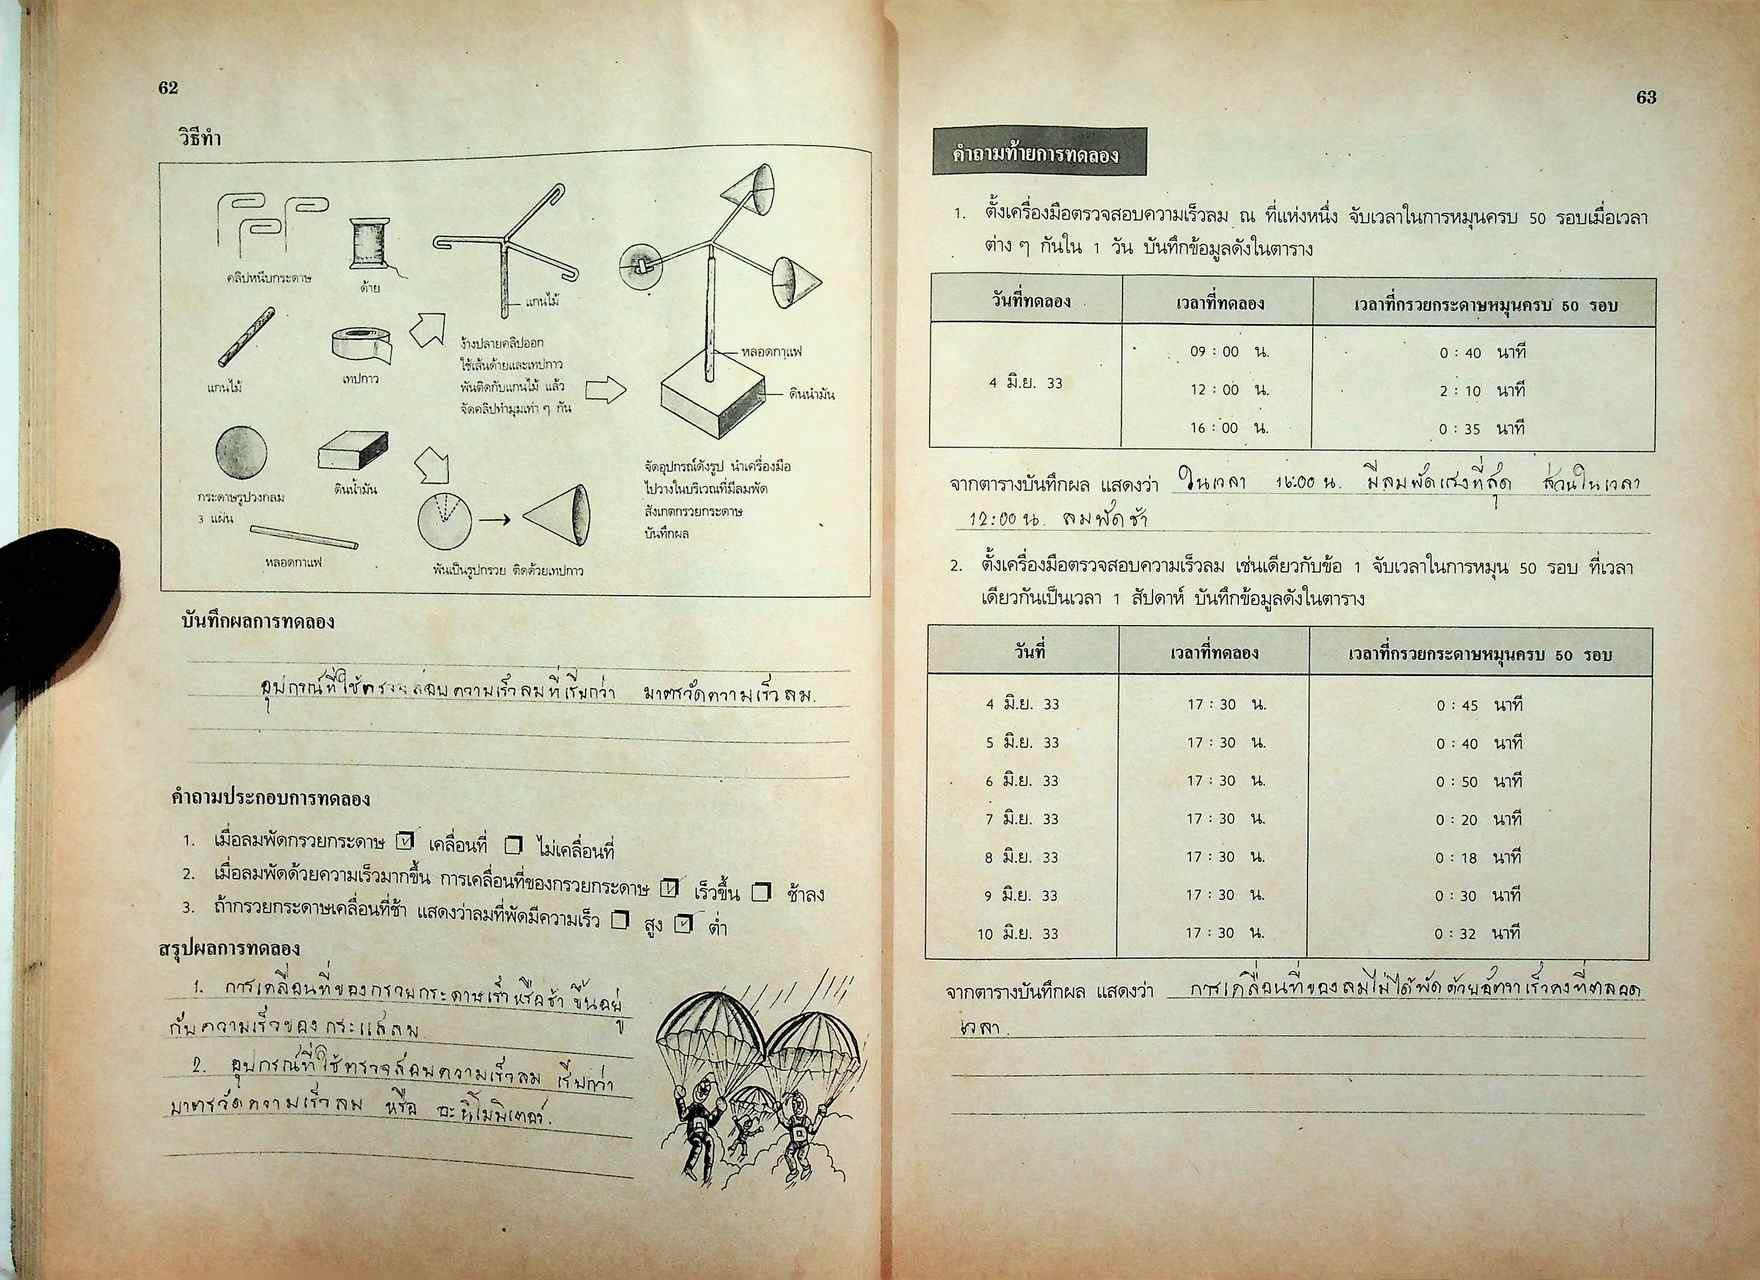 62
วิธีทำ
คลิปหนีบกระดาษ
ด้าย
แกนไม้
เทปกาว
แกนไม้
ง้างปลายคลิปออก
ใช้เส้นด้ายและเทปกาว
พันติดกับแกนไม้ แล้ว
จัดคลิปทำมุมเท่า ๆ กัน
หลอดกาแฟ
ดินน้ำมัน
กระดาษรูปวงกลม
3 แผ่น
ดินน้ำมัน
หลอดกาแฟ
พันเป็นรูปกรวย ติดด้วยเทปกาว
จัดอุปกรณ์ดังรูป นำเครื่องมือ
ไปวางในบริเวณที่มีลมพัด
สังเกตกรวยกระดาษ
บันทึกผล
บันทึกผลการทดลอง
อุปกรณ์ที่ใช้ตรวจสอบความเร็วลมที่เรียกว่า มาตรวัดความเร็วลม.
คำถามประกอบการทดลอง
1. เมื่อลมพัดกรวยกระดาษ ☑ เคลื่อนที่ ☐ ไม่เคลื่อนที่
2. เมื่อลมพัดด้วยความเร็วมากขึ้น การเคลื่อนที่ของกรวยกระดาษ ☑ เร็วขึ้น ☐ ช้าลง
3. ถ้ากรวยกระดาษเคลื่อนที่ช้า แสดงว่าลมที่พัดมีความเร็ว ☐ สูง ☑ ต่ำ
สรุปผลการทดลอง
1. การเคลื่อนที่ของกรวยกระดาษเร็วหรือช้า ขึ้นอยู่
กับความเร็วของกระแสลม
2. อุปกรณ์ที่ใช้ตรวจสอบความเร็วลม เรียกว่า
มาตรวัดความเร็วลม หรือ อะนิโมมิเตอร์.
63
คำถามท้ายการทดลอง
1. ตั้งเครื่องมือตรวจสอบความเร็วลม ณ ที่แห่งหนึ่ง จับเวลาในการหมุนครบ 50 รอบเมื่อเวลา
ต่าง ๆ กันใน 1 วัน บันทึกข้อมูลดังในตาราง
วันที่ทดลอง เวลาที่ทดลอง เวลาที่กรวยกระดาษหมุนครบ 50 รอบ
09 : 00 น. 0 : 40 นาที
4 มิ.ย. 33 12 : 00 น. 2 : 10 นาที
16 : 00 น. 0 : 35 นาที
จากตารางบันทึกผล แสดงว่า ในเวลา 16:00 น. มีลมพัดแรงที่สุด ส่วนในเวลา
12:00 น. ลมพัดช้า
2. ตั้งเครื่องมือตรวจสอบความเร็วลม เช่นเดียวกับข้อ 1 จับเวลาในการหมุน 50 รอบ ที่เวลา
เดียวกันเป็นเวลา 1 สัปดาห์ บันทึกข้อมูลดังในตาราง
วันที่ เวลาที่ทดลอง เวลาที่กรวยกระดาษหมุนครบ 50 รอบ
4 มิ.ย. 33 17 : 30 น. 0 : 45 นาที
5 มิ.ย. 33 17 : 30 น. 0 : 40 นาที
6 มิ.ย. 33 17 : 30 น. 0 : 50 นาที
7 มิ.ย. 33 17 : 30 น. 0 : 20 นาที
8 มิ.ย. 33 17 : 30 น. 0 : 18 นาที
9 มิ.ย. 33 17 : 30 น. 0 : 30 นาที
10 มิ.ย. 33 17 : 30 น. 0 : 32 นาที
จากตารางบันทึกผล แสดงว่า การเคลื่อนที่ของลมไม่ได้พัดด้วยอัตราเร็วคงที่ตลอด
เวลา.